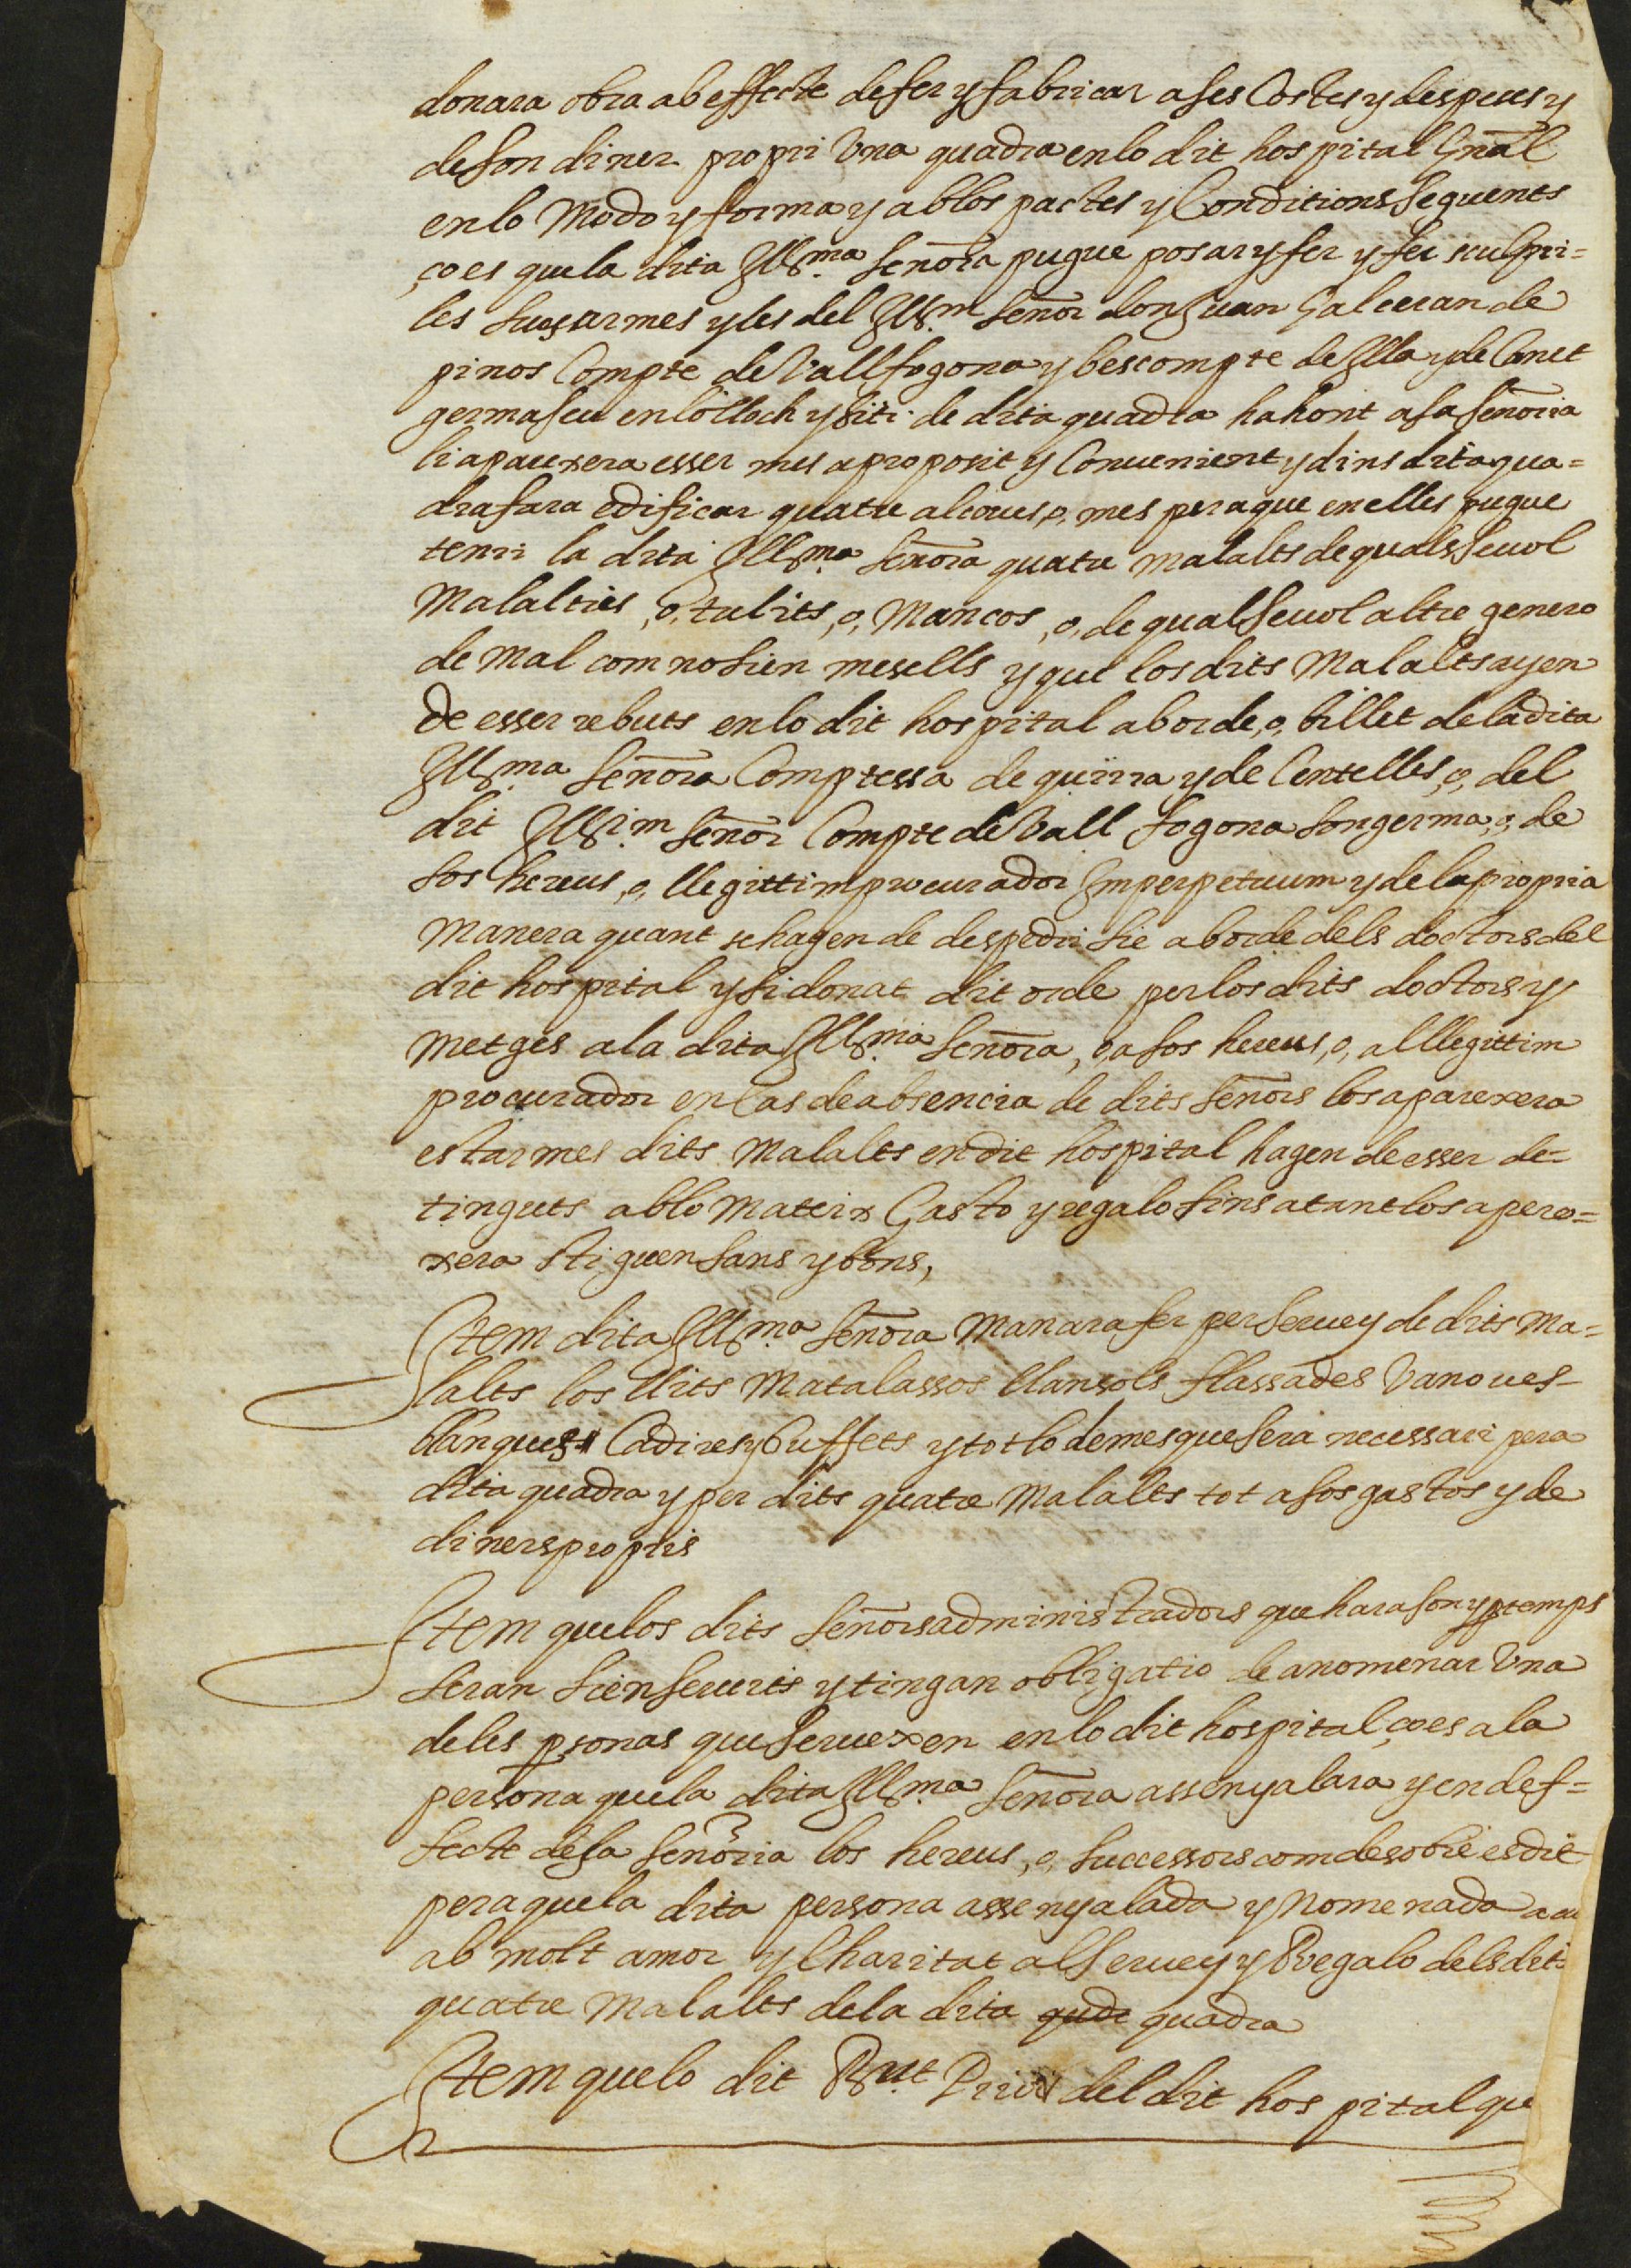 donara obra ab effecte de fer y fabricar a ses Costes y despeses y
de son diner propri Vna quadra en lo dit hospital Gnāl
en lo Modo y forma y ab los pactes y Conditions seguents
ço es que la dita Illma. Señora pugue posar y fer y fer sculpir=
les suas armes y les del Illm. Señor don Juan Galceran de
pinos Compte de Vallfogona y bescompte de Illa y de Canet
germa seu en lo lloch y siti de dita quadra hahont a sa señoria
li aparexera esser mes a proposit y Conuenient y dins dita qua=
dra fara edificar quatre alcoues, o, mes pera que en elles pugue
tenir la dita Illma. Señora quatre malalts de quals seuol
Malalties, o, tulits, o, Mancos, o, de qual seuol altre genero
de Mal com no sien mesells y que los dits Malalts ayen
de esser rebuts en lo dit hospital ab orde, o, billet de la dita
Illma. Señora Comptessa de quirra y de Centelles, o, del
dit Illrim. Señor Compte de Vall fogona son germa, o, de
sos hereus, o, llegittim procurador Imperpetuum y de la propria
Manera quant se hagen de despedir sie ab orde dels doctors del
dit hospital y si donat dit orde per los dits doctors y
Metges a la dita Illma. Señora, o, a sos hereus, o, al llegittim
procurador en Cas de absencia de dits señors los aparexera
estar mes dits Malalts en dit hospital hagen de esser de=
tinguts ab lo Mateix Gasto y regalo fins a tant los apere=
xera stiguen sans y bons,
Item dita Illma. Señora Manara fer per seruey de dits Ma=
lalts los llits Matalassos llansols flassades Vanoues
blanques Cadires y buffets y tot lo demes que sera necessari pera
dita quadra y per dits quatre Malalts tot a sos gastos y de
diners propris
Item que los dits Señors administradors que hara son y p temps
seran sien seruits y tingan obligatio de anomenar Vna
de les psonas que seruexen en lo dit hospital ço es a la
persona que la dita Illma. Señora assenyalara y en def=
fecte de sa señoria los hereus, o, successors com desobre es dit
pera que la dita persona assenyalada y Nomenada
ab molt amor y Charitat al seruey y Regalo dels dits
quatre Malalts de la dita qudr quadra
Item que lo dit Rnt Prior del dit hospital que